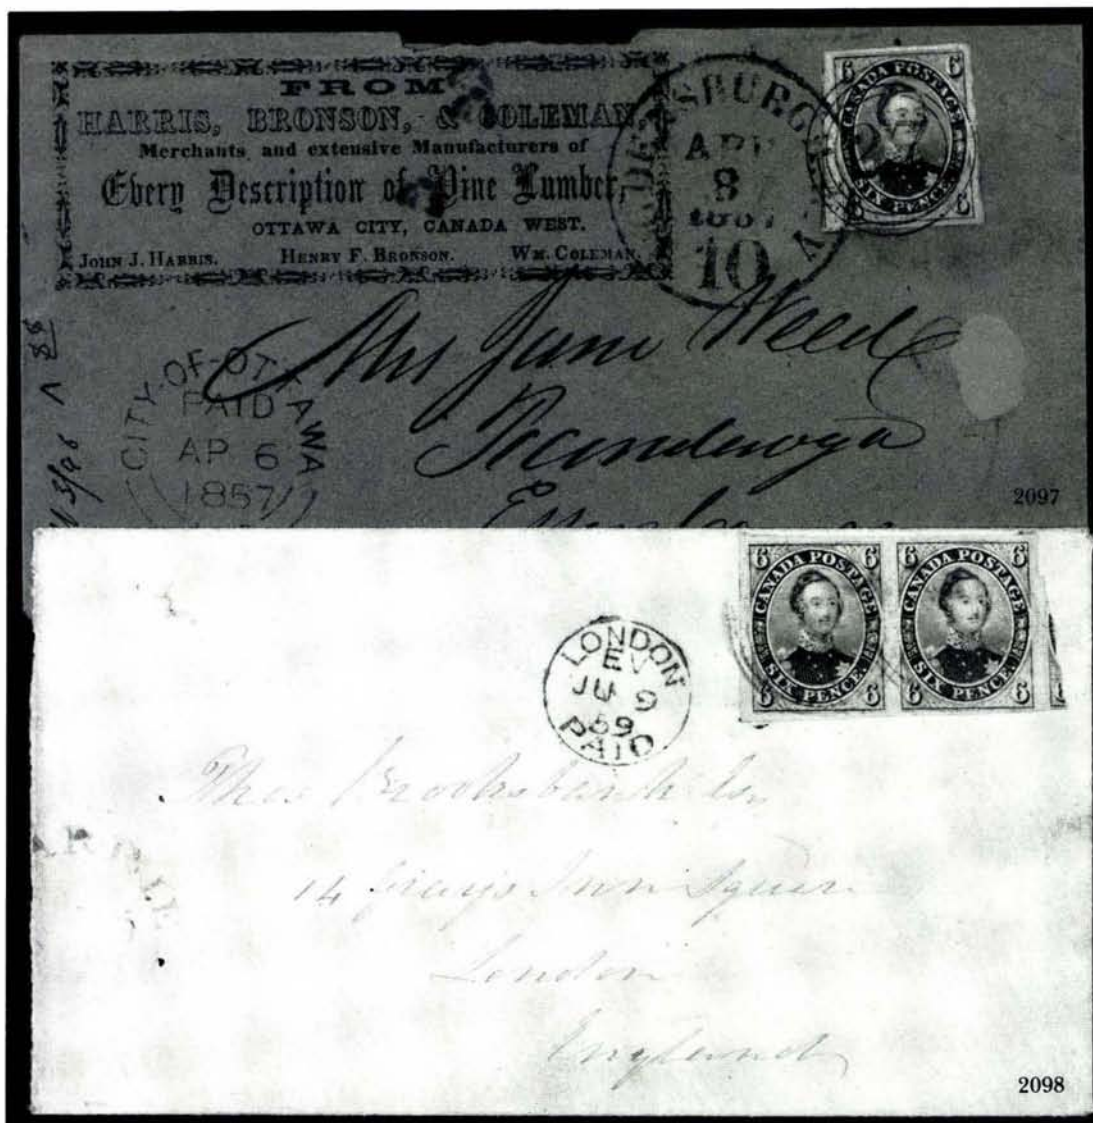 FROM
HARRIS, BRONSON, & COLEMAN,
Merchants and extensive Manufacturers of
Every Description of Pine Lumber,
OTTAWA CITY, CANADA WEST.
JOHN J. HARRIS. HENRY F. BRONSON. WM. COLEMAN.
OGDENSBURGH N.Y.
APR
8
1857
10
6 CANADA POSTAGE 6
6 SIX PENCE 6
Mrs Jane Weed
Ticonderoga
CITY-OF-OTTAWA
PAID
AP 6
1857
2097
6 CANADA POSTAGE 6
6 SIX PENCE. 6
6 CANADA POSTAGE 6
6 SIX PENCE. 6
LONDON
EV
JU 9
59
PAID
Thos Brooksbank Esq
14 Grays Inn Square
London
England
2098